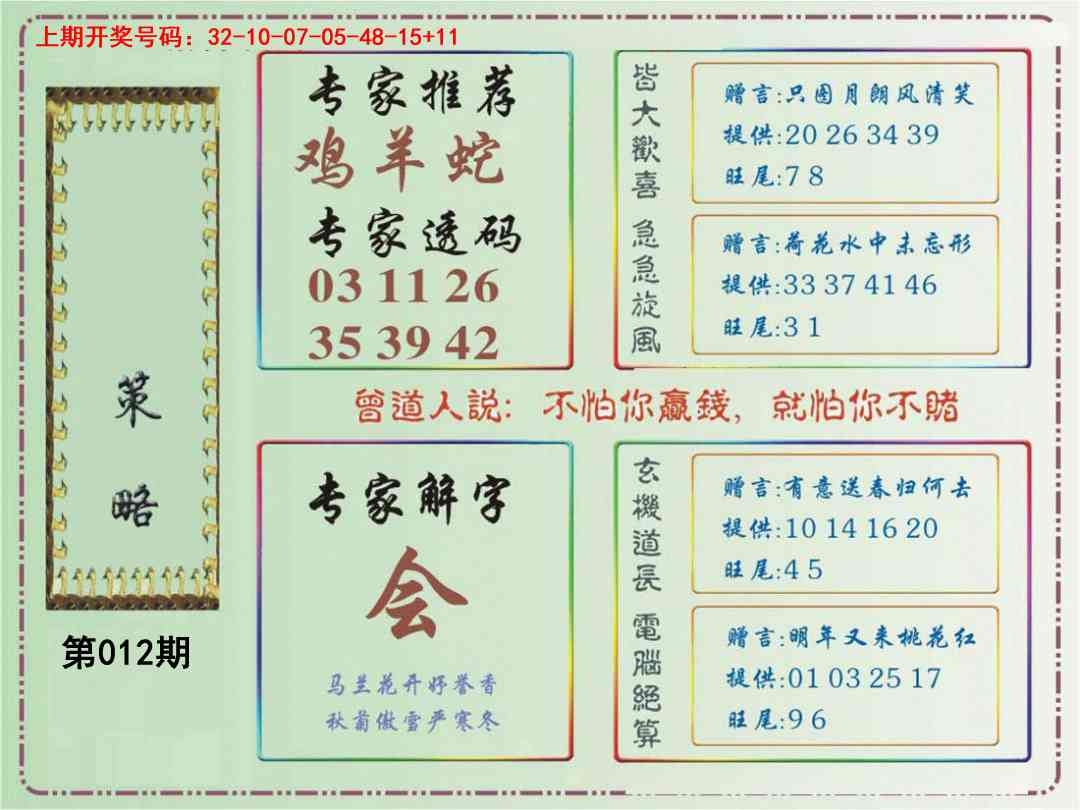 上期开奖号码：32-10-07-05-48-15+11
策略
第012期
专家推荐
鸡羊蛇
专家透码
03 11 26
35 39 42
皆大歡喜
赠言:只图月朗风清笑
提供:20 26 34 39
旺尾:7 8
急急旋风
赠言:荷花水中未忘形
提供:33 37 41 46
旺尾:3 1
曾道人説：不怕你赢錢，就怕你不賭
专家解字
会
马兰花开妤誉香
秋菊傲雪严寒冬
玄機道長
赠言:有意送春归何去
提供:10 14 16 20
旺尾:4 5
電腦絕算
赠言:明年又来桃花红
提供:01 03 25 17
旺尾:9 6